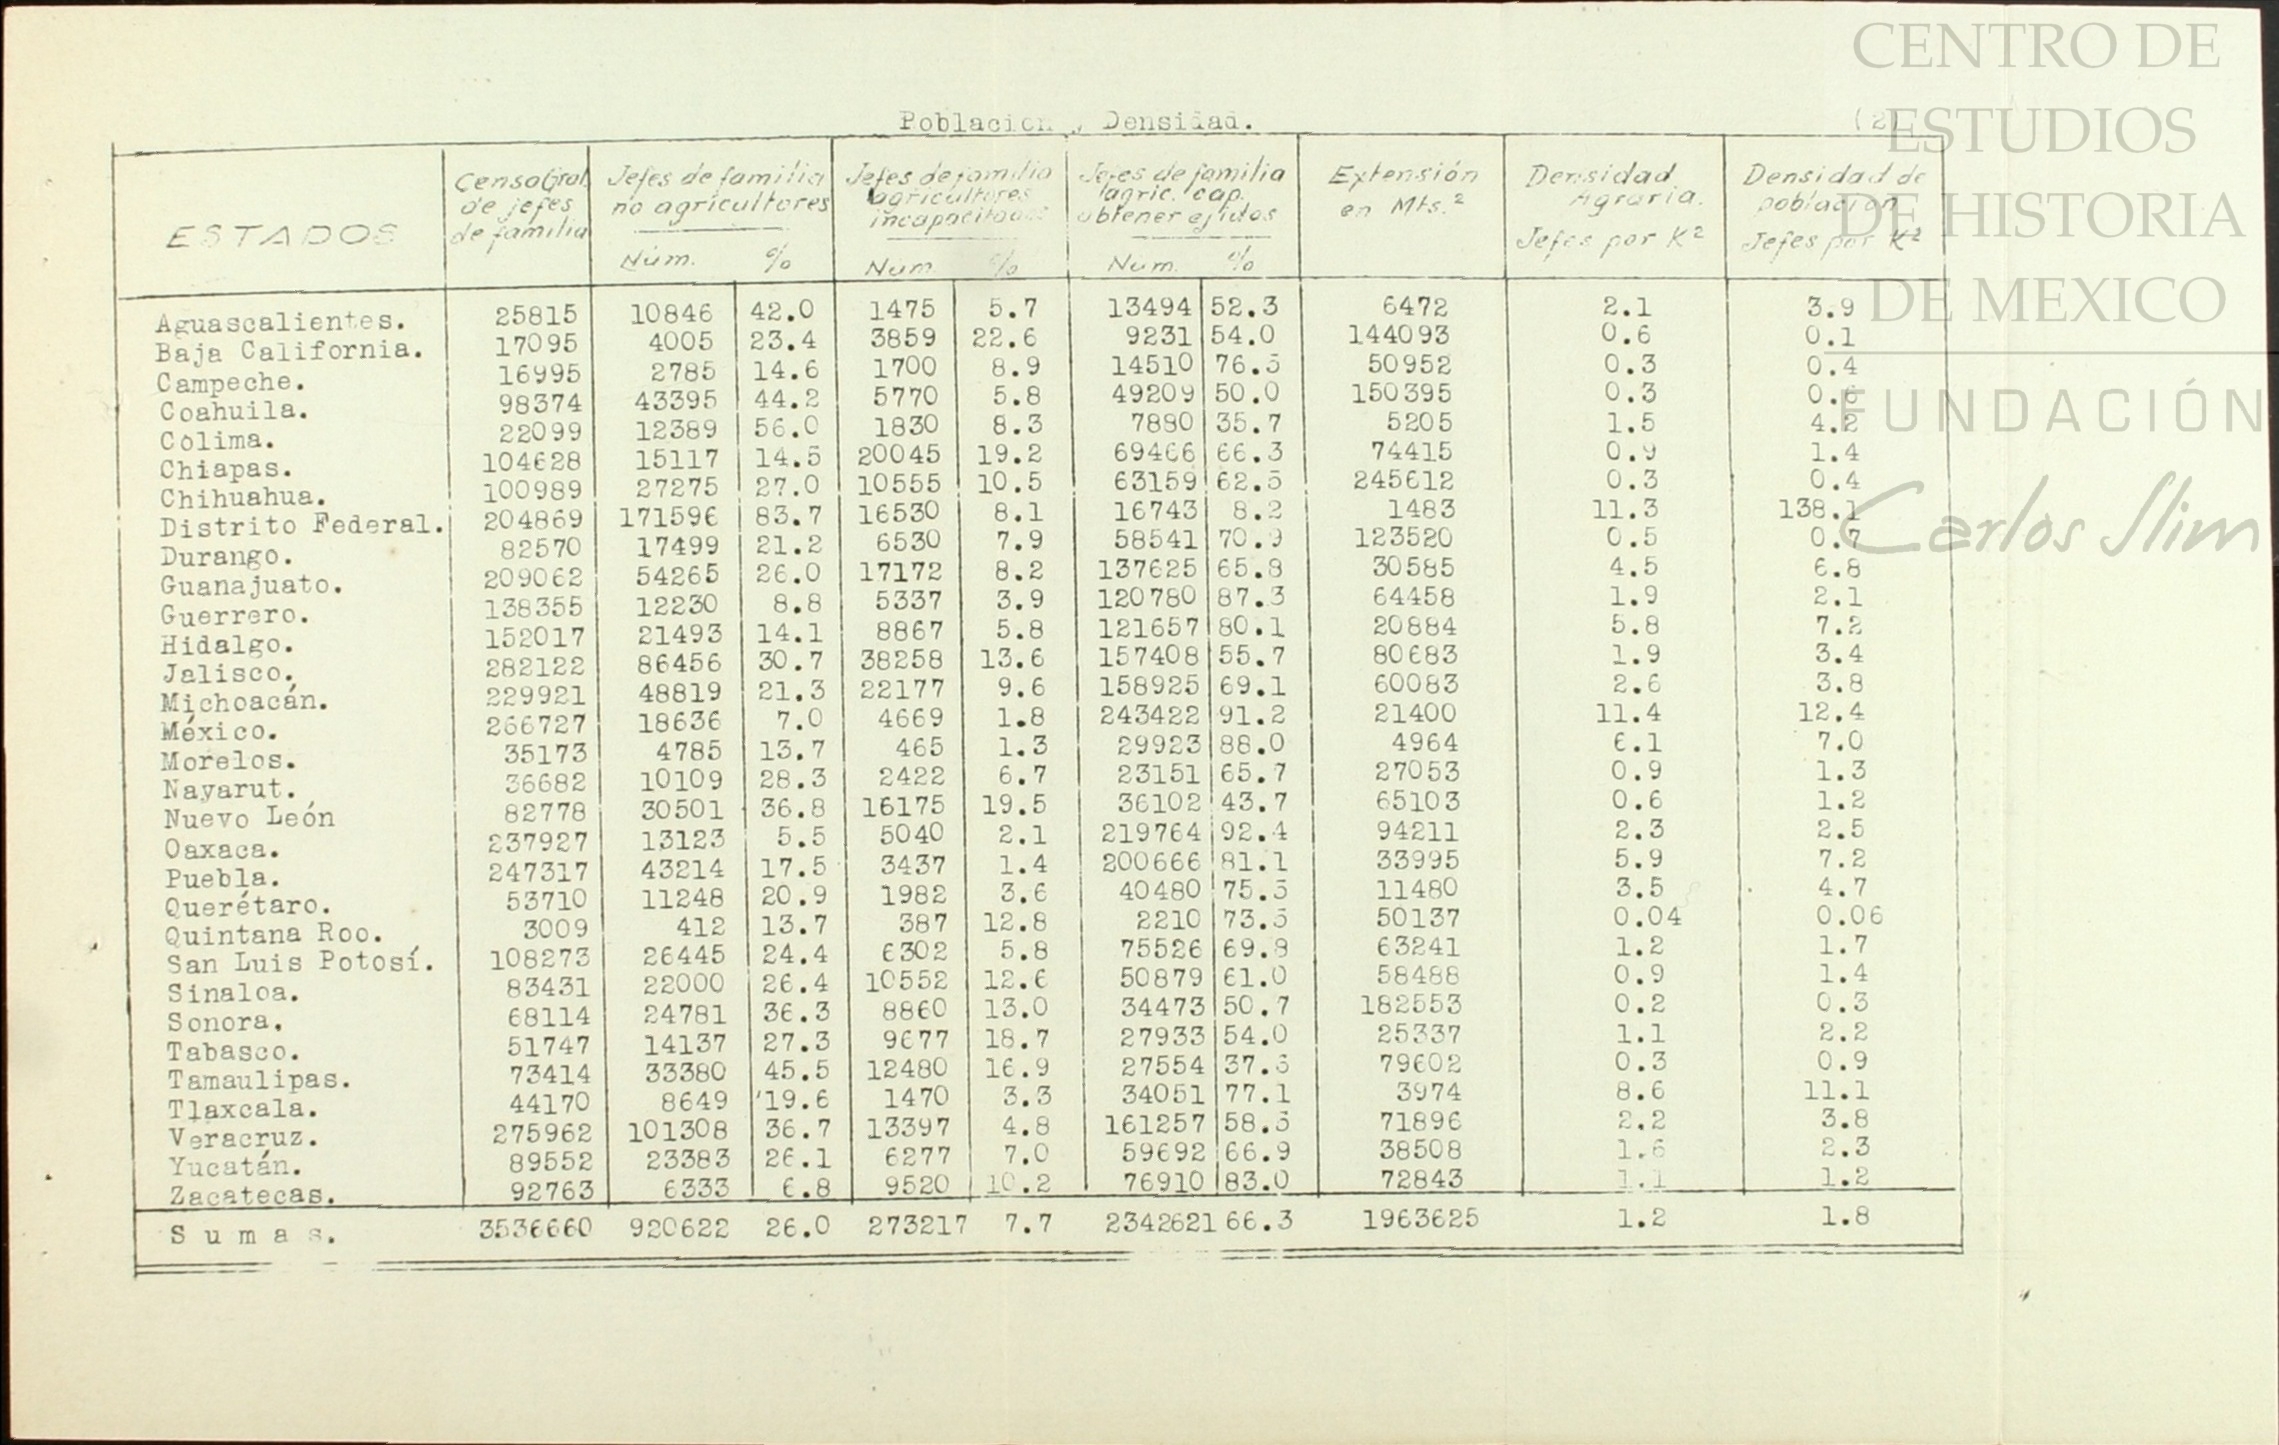 CENTRO DE
ESTUDIOS
DE HISTORIA
DE MEXICO
FUNDACIÓN
Carlos Slim
Poblacion y Densidad. (2)
ESTADOS
Censo Gral. de jefes de familia
Jefes de familia no agricultores Núm. %
Jefes de familia agricultores incapacitados Núm %
Jefes de familia agric. cap. obtener ejidos Num. %
Extensión en Mts.²
Densidad Agraria. Jefes por K²
Densidad de poblacion Jefes por K²
Aguascalientes. 25815 10846 42.0 1475 5.7 13494 52.3 6472 2.1 3.9
Baja California. 17095 4005 23.4 3859 22.6 9231 54.0 144093 0.6 0.1
Campeche. 16995 2785 14.6 1700 8.9 14510 76.5 50952 0.3 0.4
Coahuila. 98374 43395 44.2 5770 5.8 49209 50.0 150395 0.3 0.6
Colima. 22099 12389 56.0 1830 8.3 7880 35.7 5205 1.5 4.2
Chiapas. 104628 15117 14.5 20045 19.2 69466 66.3 74415 0.9 1.4
Chihuahua. 100989 27275 27.0 10555 10.5 63159 62.5 245612 0.3 0.4
Distrito Federal. 204869 171596 83.7 16530 8.1 16743 8.2 1483 11.3 138.1
Durango. 82570 17499 21.2 6530 7.9 58541 70.9 123520 0.5 0.7
Guanajuato. 209062 54265 26.0 17172 8.2 137625 65.8 30585 4.5 6.8
Guerrero. 138355 12230 8.8 5337 3.9 120780 87.3 64458 1.9 2.1
Hidalgo. 152017 21493 14.1 8867 5.8 121657 80.1 20884 5.8 7.2
Jalisco. 282122 86456 30.7 38258 13.6 157408 55.7 80683 1.9 3.4
Michoacán. 229921 48819 21.3 22177 9.6 158925 69.1 60083 2.6 3.8
México. 266727 18636 7.0 4669 1.8 243422 91.2 21400 11.4 12.4
Morelos. 35173 4785 13.7 465 1.3 29923 88.0 4964 6.1 7.0
Nayarut. 36682 10109 28.3 2422 6.7 23151 65.7 27053 0.9 1.3
Nuevo León 82778 30501 36.8 16175 19.5 36102 43.7 65103 0.6 1.2
Oaxaca. 237927 13123 5.5 5040 2.1 219764 92.4 94211 2.3 2.5
Puebla. 247317 43214 17.5 3437 1.4 200666 81.1 33995 5.9 7.2
Querétaro. 53710 11248 20.9 1982 3.6 40480 75.5 11480 3.5 4.7
Quintana Roo. 3009 412 13.7 387 12.8 2210 73.5 50137 0.04 0.06
San Luis Potosí. 108273 26445 24.4 6302 5.8 75526 69.8 63241 1.2 1.7
Sinaloa. 83431 22000 26.4 10552 12.6 50879 61.0 58488 0.9 1.4
Sonora. 68114 24781 36.3 8860 13.0 34473 50.7 182553 0.2 0.3
Tabasco. 51747 14137 27.3 9677 18.7 27933 54.0 25337 1.1 2.2
Tamaulipas. 73414 33380 45.5 12480 16.9 27554 37.6 79602 0.3 0.9
Tlaxcala. 44170 8649 19.6 1470 3.3 34051 77.1 3974 8.6 11.1
Veracruz. 275962 101308 36.7 13397 4.8 161257 58.5 71896 2.2 3.8
Yucatán. 89552 23383 26.1 6277 7.0 59692 66.9 38508 1.6 2.3
Zacatecas. 92763 6333 6.8 9520 10.2 76910 83.0 72843 1.1 1.2
Sumas. 3536660 920622 26.0 273217 7.7 2342621 66.3 1963625 1.2 1.8